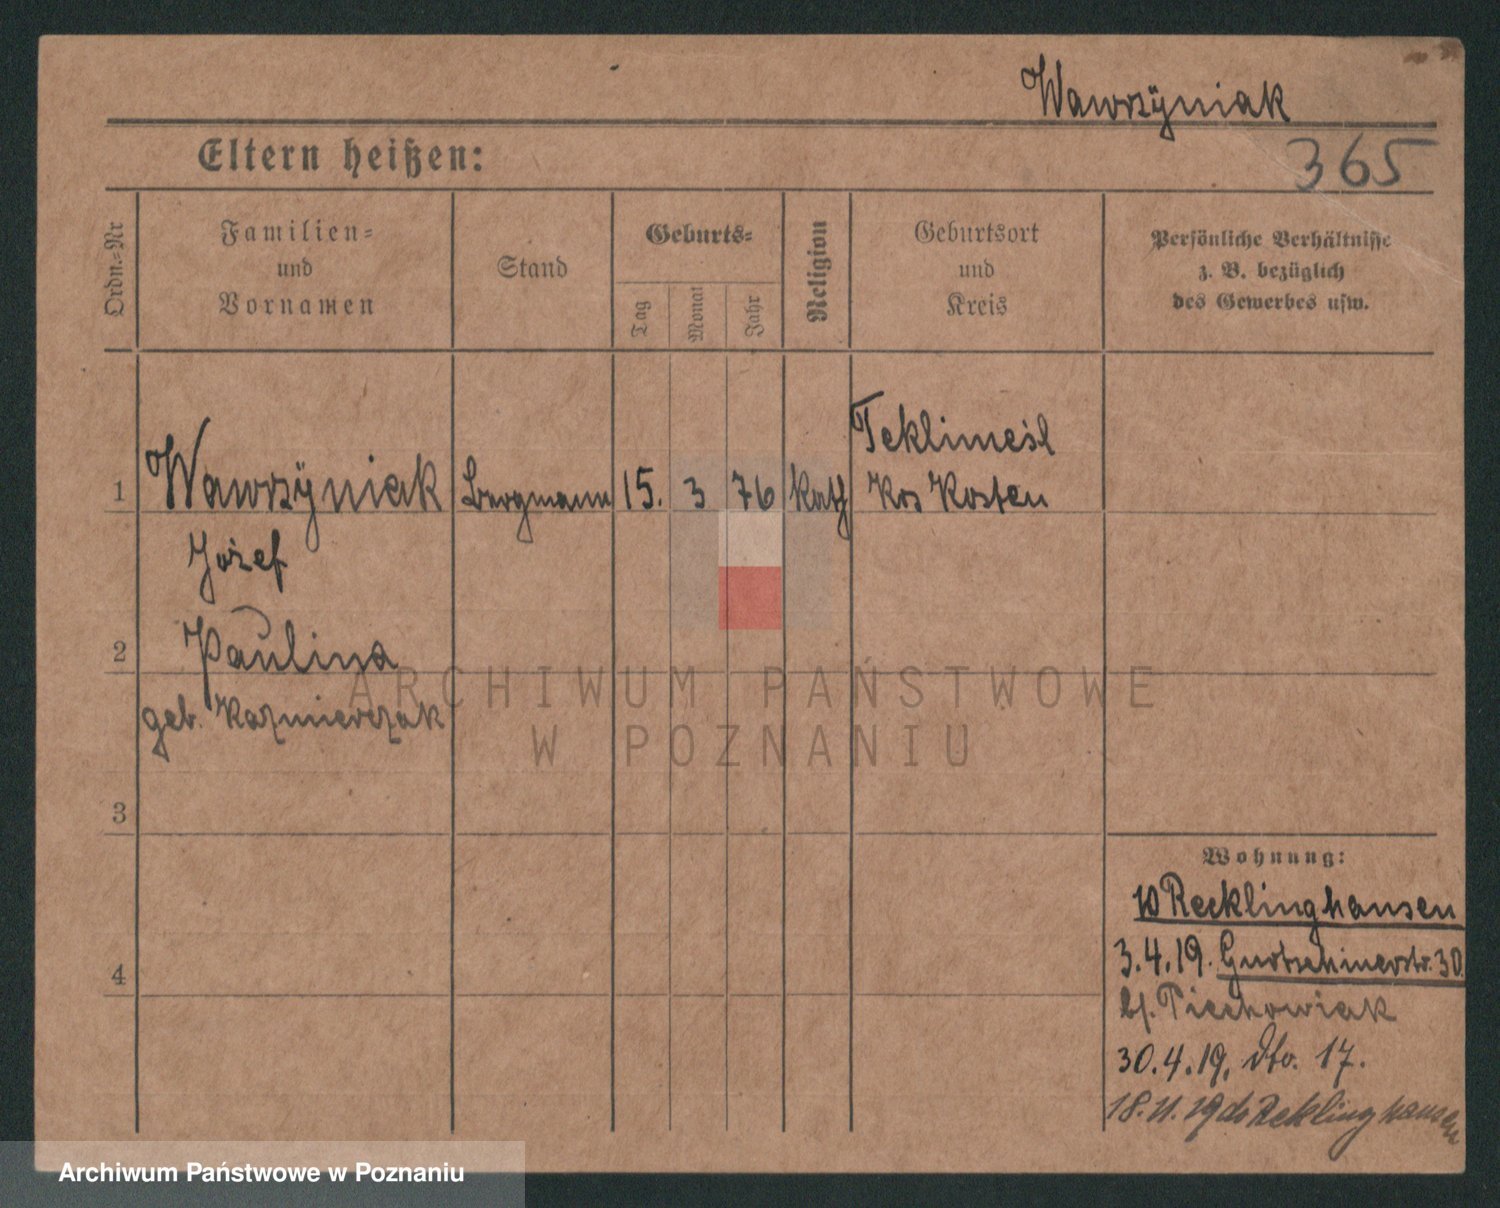 Wawrzÿniak
Eltern heißen:
365
Ordn.-Nr
Familien-
und
Vornamen
Stand
Geburts-
Tag
Monat
Jahr
Religion
Geburtsort
und
Kreis
Persönliche Verhältnisse
z. B. bezüglich
des Gewerbes usw.
Teklimeśl
1 Wawrzÿniak Bergmann 15. 3 76 kath Krs Kosten
Józef
2 Paulina
geb. Kazmierczak
ARCHIWUM PAŃSTWOWE
W POZNANIU
3
Wohnung:
10 Recklinghausen
3.4.19. Gurtschinerstr. 30.
4
b/. Piechowiak
30.4.19. dto. 17.
18.11.19 do Reklinghausen
Archiwum Państwowe w Poznaniu